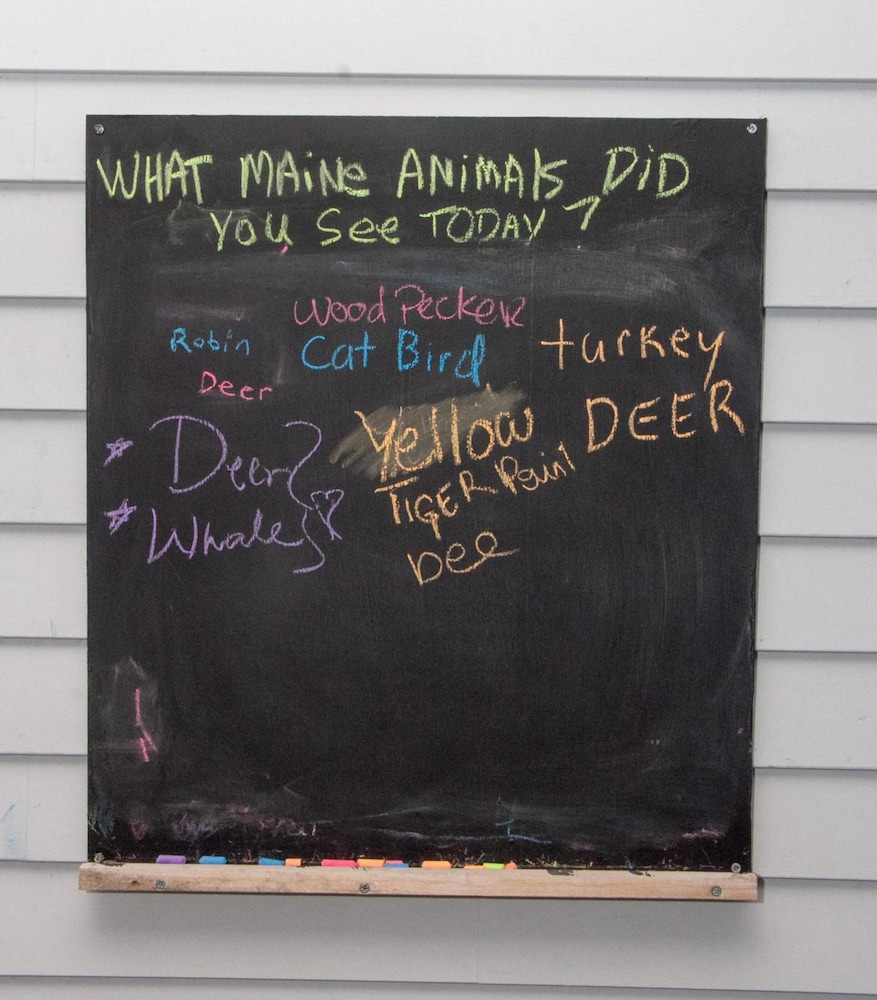 WHAT MAINE ANIMALS DID
YOU SEE TODAY?
Wood Pecker
Robin
Cat Bird
turkey
Deer
DEER
Yellow
TIGER
Deer
Whale
Dee